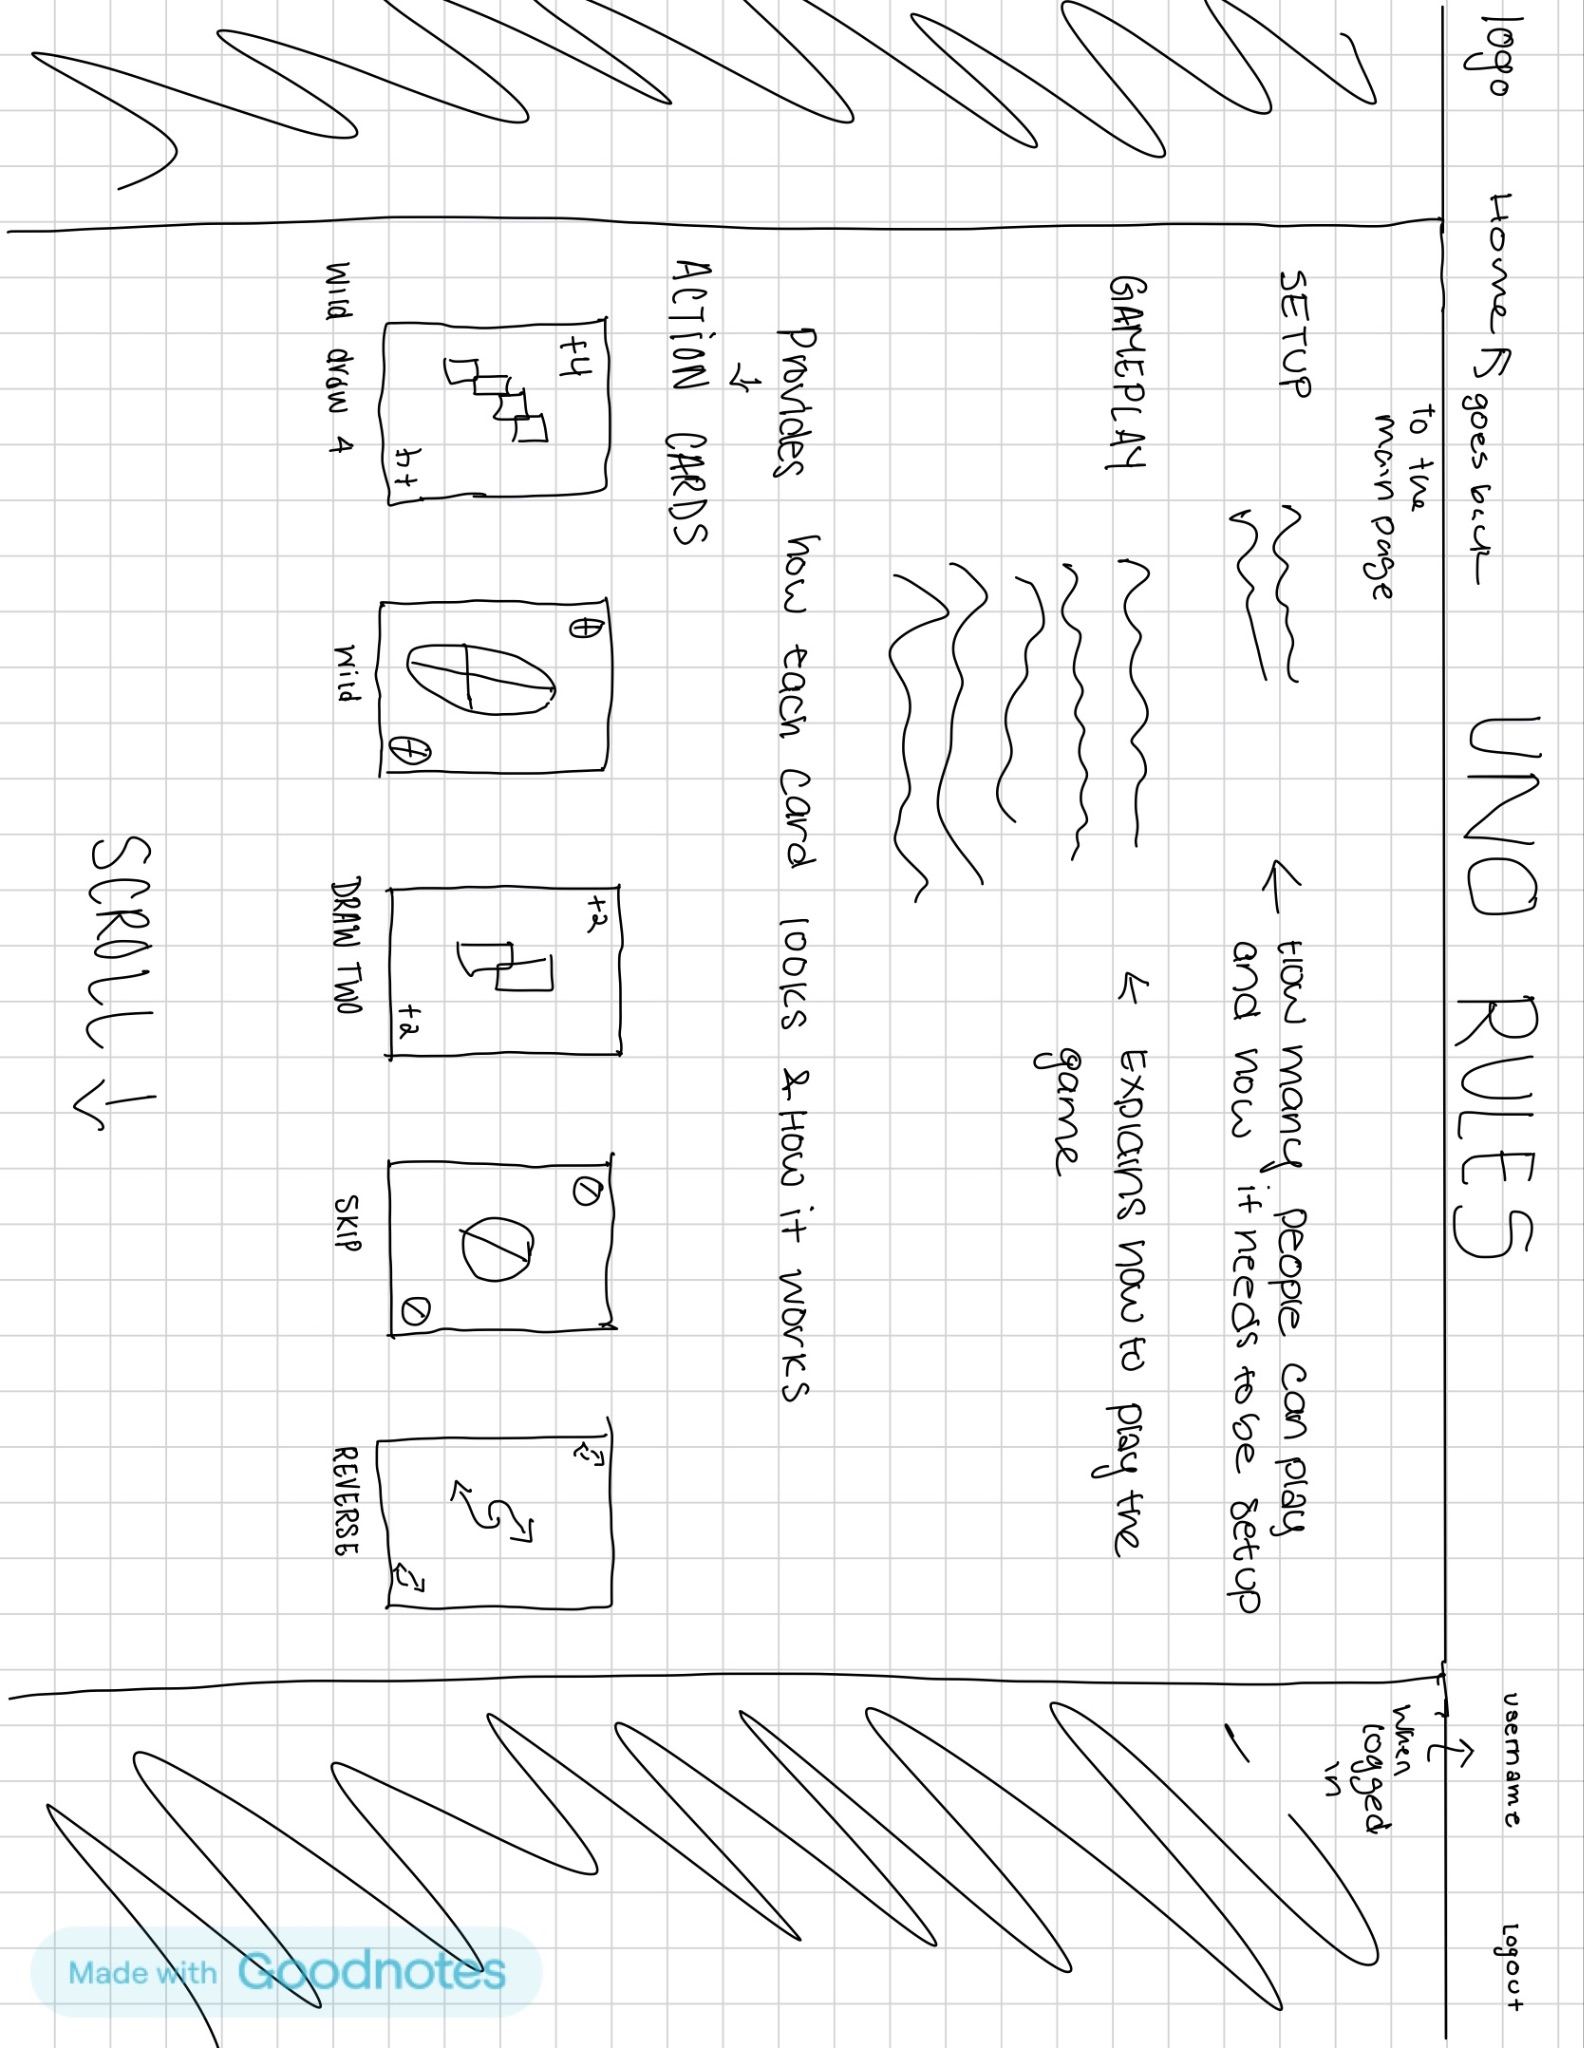 logo Home UNO RULES username Logout
↑ goes back
to the
main page
↑
when
logged
in
SETUP ← How many people can play
and how if needs to be setup
GAMEPLAY ← Explains how to play the
game
Provides how each card looks & How it works
↓
ACTION CARDS
+4 +2
+4 +2
Wild draw 4 Wild DRAW TWO SKIP REVERSE
SCROLL ↓
Made with Goodnotes